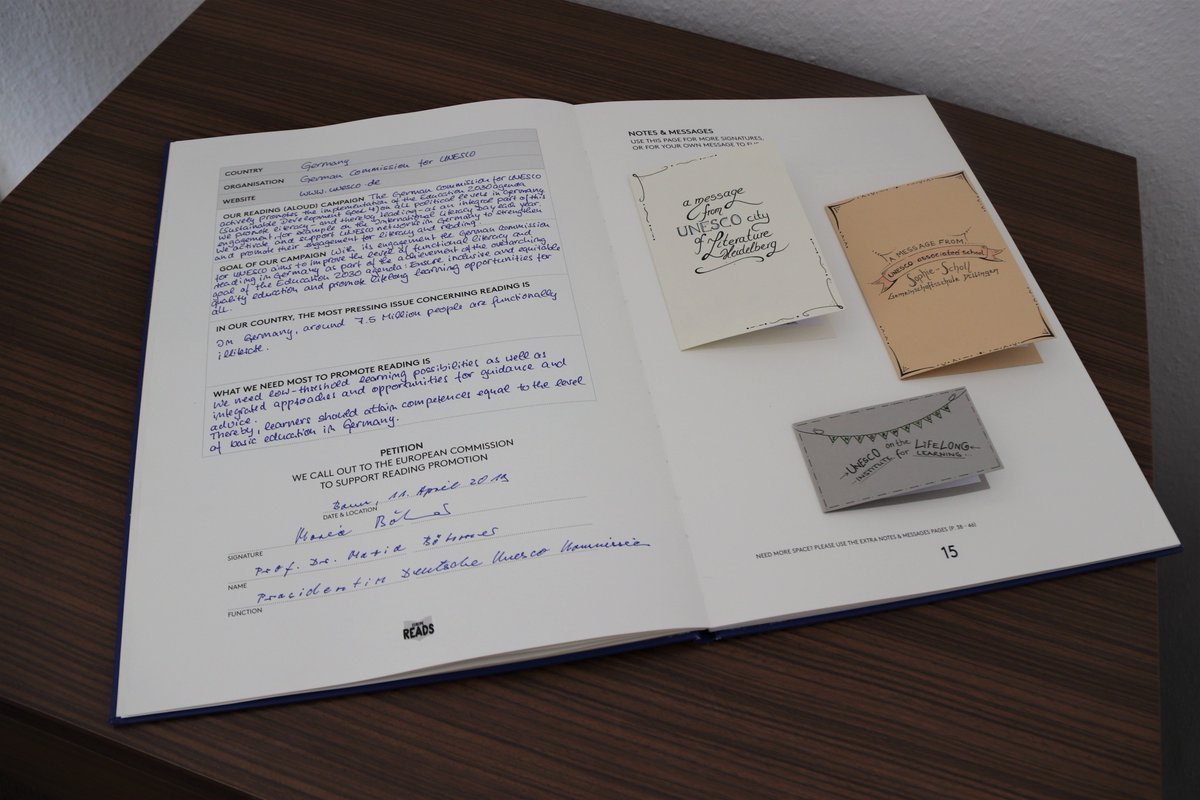 COUNTRY Germany
ORGANISATION German Commission for UNESCO
WEBSITE www.unesco.de
OUR READING (ALOUD) CAMPAIGN The German Commission for UNESCO
actively promotes the implementation of the Education 2030 agenda
(Sustainable Development Goal 4) on all political levels in Germany.
We promote literacy - and thereby reading - as an integral part of this
engagement, for example on the International Literacy Day each year.
We activate and support UNESCO networks in Germany to strengthen
and promote their engagement for literacy and reading.
GOAL OF OUR CAMPAIGN With its engagement the German Commission
for UNESCO aims to improve the level of functional literacy and
reading in Germany as part of the achievement of the overarching
goal of the Education 2030 agenda: Ensure inclusive and equitable
quality education and promote lifelong learning opportunities for
all.
IN OUR COUNTRY, THE MOST PRESSING ISSUE CONCERNING READING IS
In Germany, around 7.5 Million people are functionally
illiterate.
WHAT WE NEED MOST TO PROMOTE READING IS
We need low-threshold learning possibilities as well as
integrated approaches and opportunities for guidance and
advice.
Thereby, learners should attain competences equal to the level
of basic education in Germany.
PETITION
WE CALL OUT TO THE EUROPEAN COMMISSION
TO SUPPORT READING PROMOTION
Bonn, 11. April 2019
DATE & LOCATION
Maria
SIGNATURE
Prof. Dr. Maria Böhmer
NAME
Präsidentin Deutsche Unesco Kommission
FUNCTION
READS
NOTES & MESSAGES
USE THIS PAGE FOR MORE SIGNATURES,
OR FOR YOUR OWN MESSAGE TO
a message
from
UNESCO city
of Literature
Heidelberg
A MESSAGE FROM
UNESCO associated school
Sophie-Scholl
Gemeinschaftsschule
UNESCO on the
INSTITUTE for LIFELONG
LEARNING
NEED MORE SPACE? PLEASE USE THE EXTRA NOTES & MESSAGES PAGES (P. 38 - 46)
15